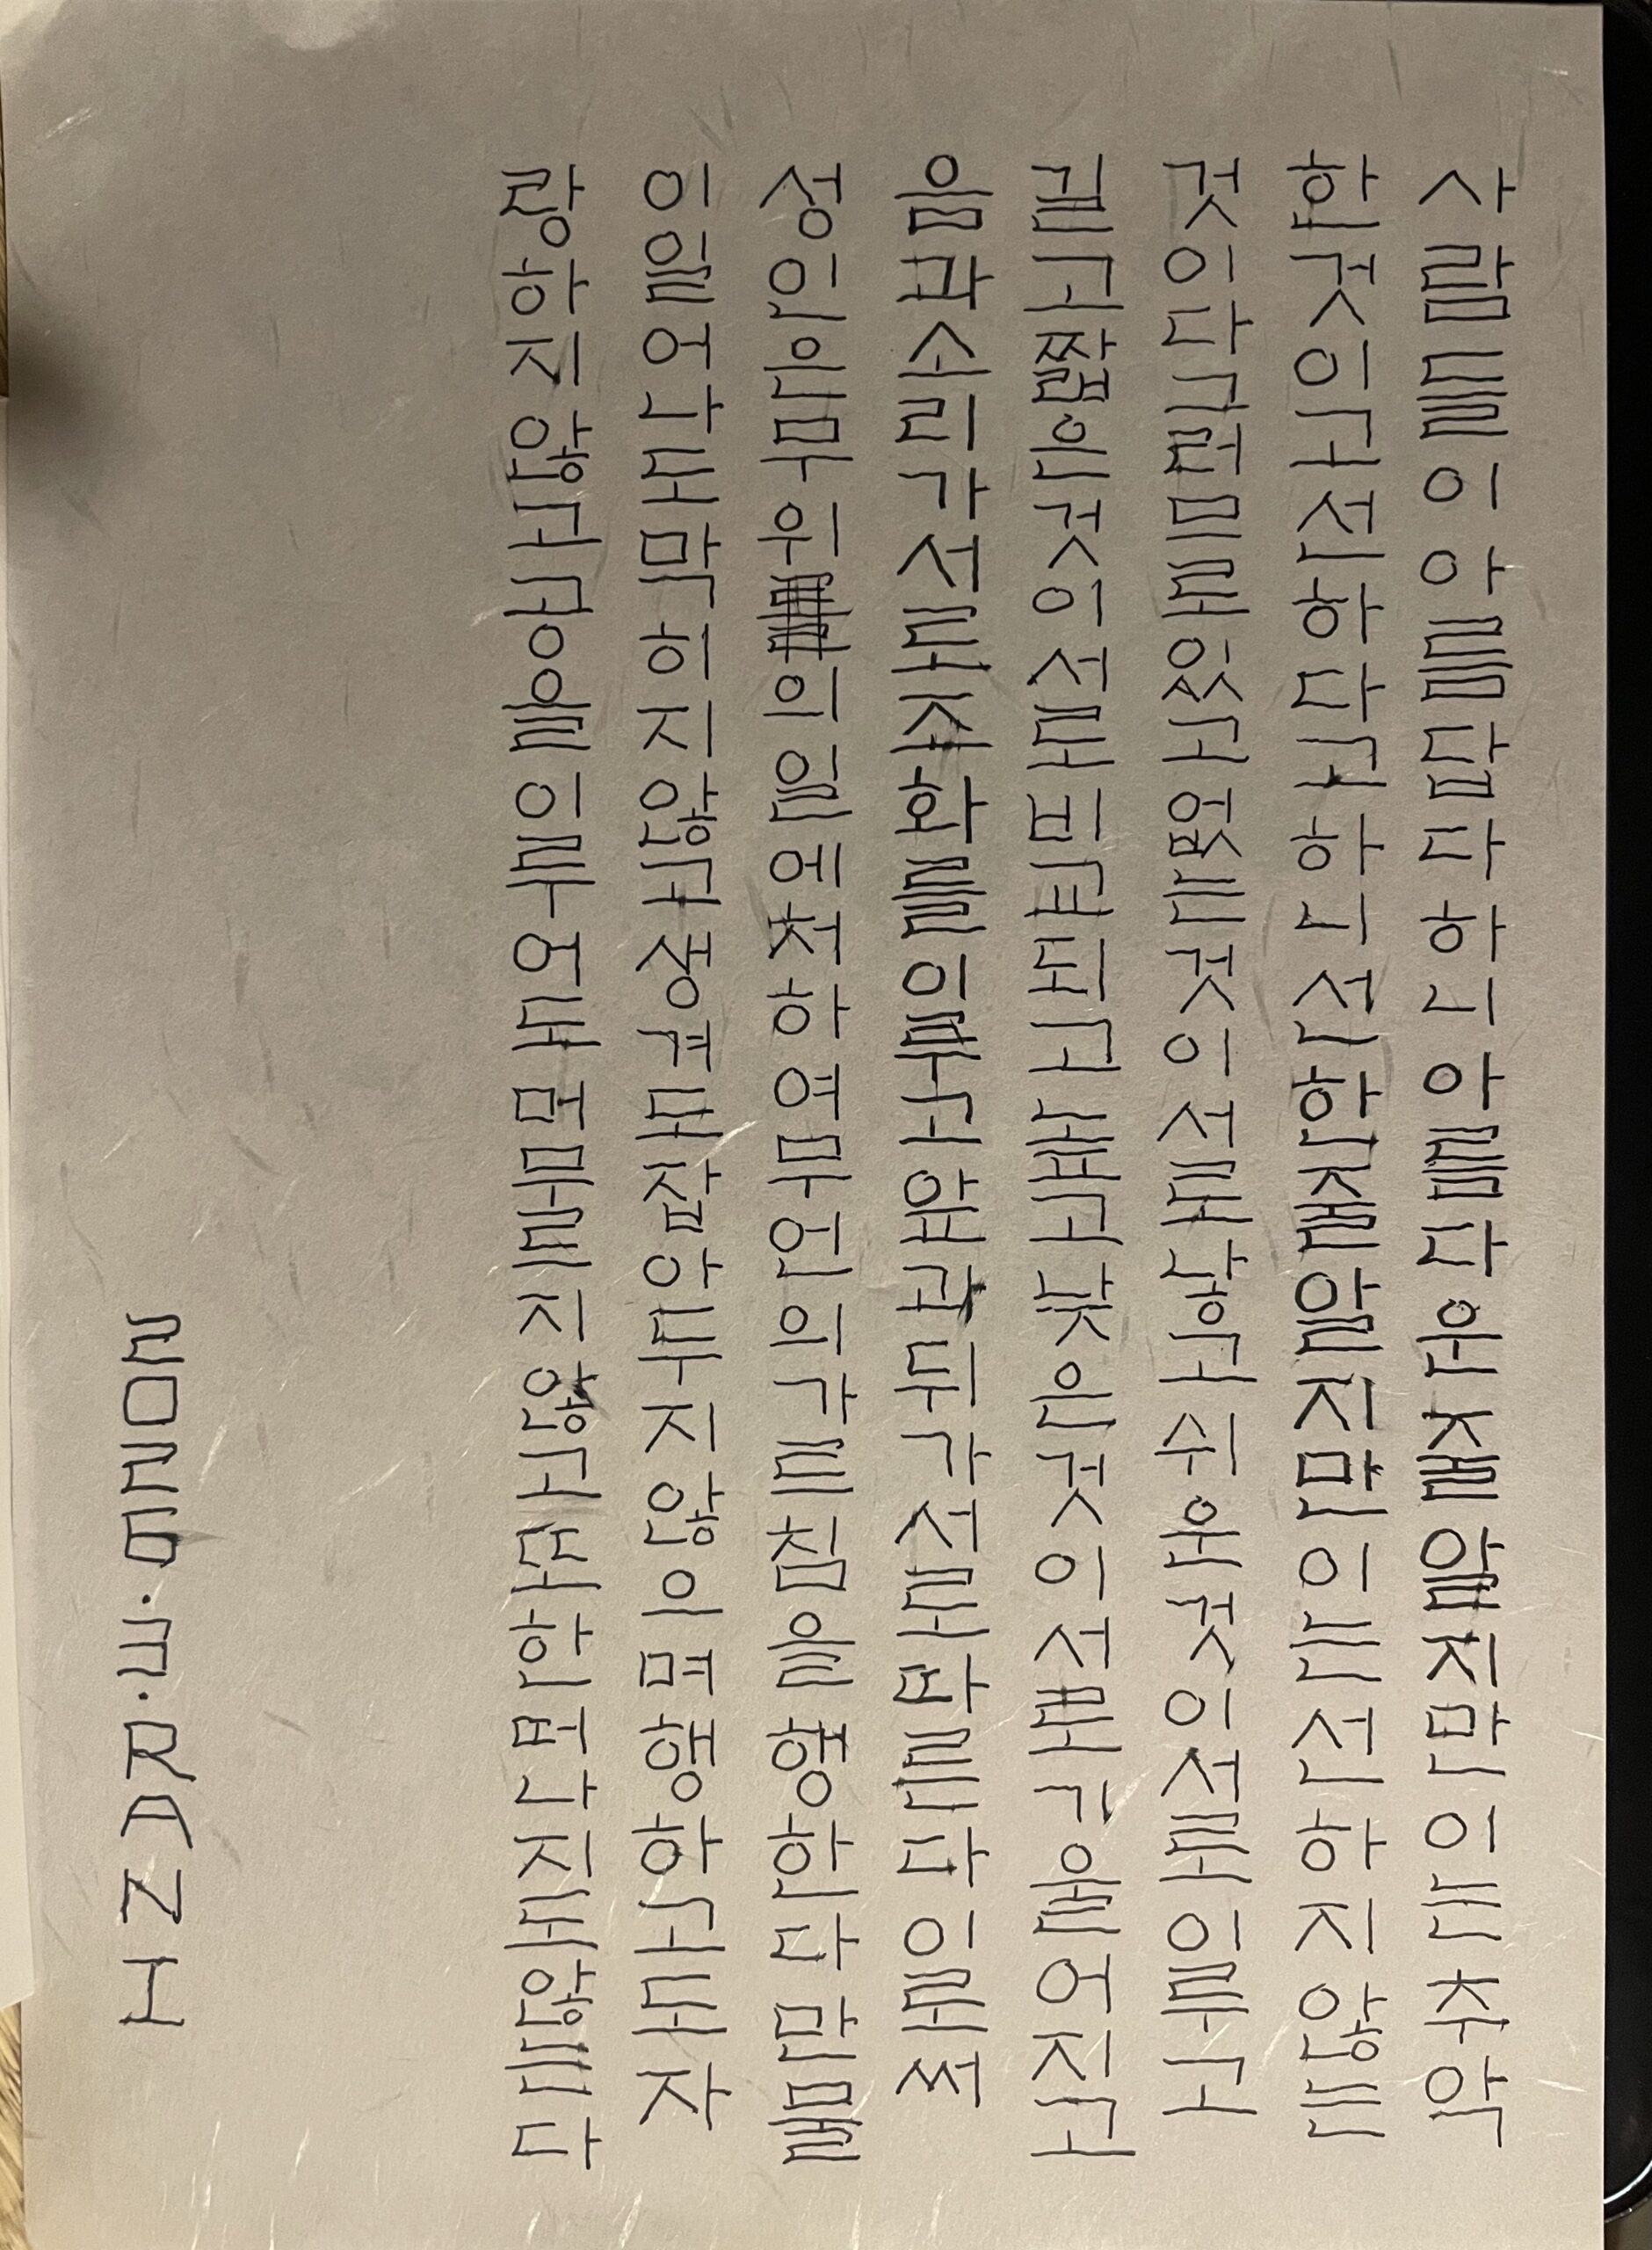 사람들이아름답다하니아름다운줄알지만이는추악
한것이고선하다고하니선한줄알지만이는선하지않는
것이다그러므로있고없는것이서로낳고쉬운것이서로이루고
길고짧은것이서로비교되고높고낮은것이서로기울어지고
음과소리가서로조화를이루고앞과뒤가서로따른다이로써
성인은무위의일에처하여무언의가르침을행한다만물
이일어나도막히지않고생겨도잡아두지않으며행하고도자
랑하지않고공을이루어도머무르지않고또한떠나지도않는다